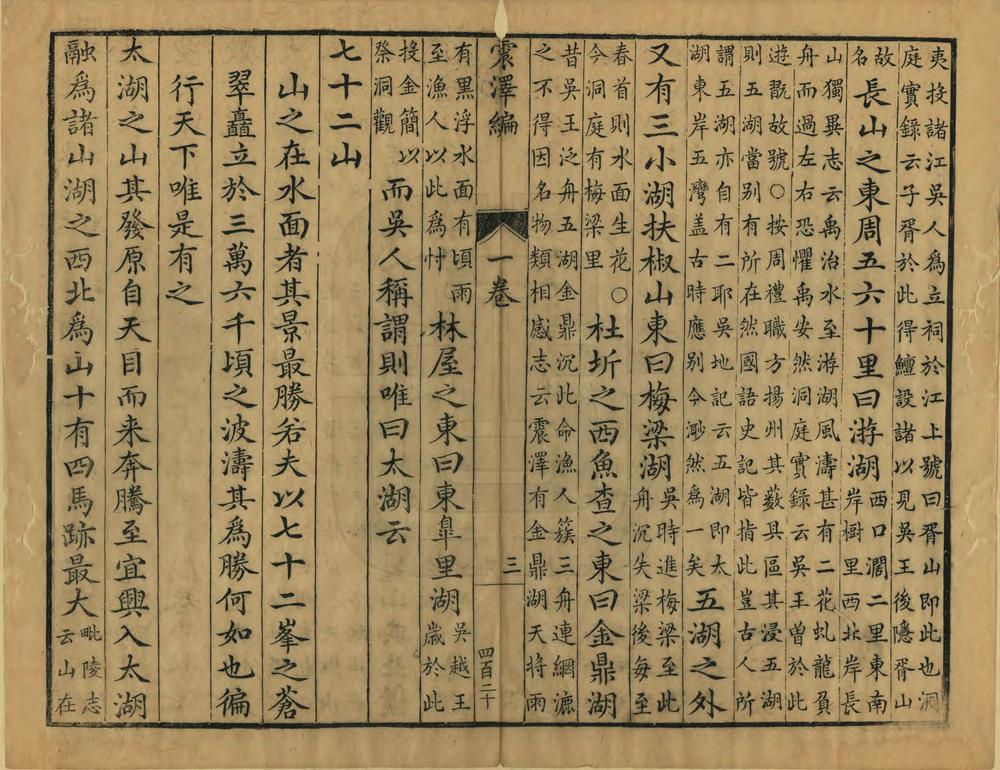 夷投諸江吳人爲立祠於江上號曰胥山即此也洞
庭實錄云子胥於此得鱣設諸以見吳王後隱胥山
故
名
長山之東周五六十里曰游湖
西口濶二里東南
岸樹里西北岸長
山獨異志云禹治水至游湖風濤甚有二花虬龍負
舟而過左右恐懼禹安然洞庭實錄云吳王曽於此
遊翫故號○按周禮職方揚州其藪具區其浸五湖
則五湖當别有所在然國語史記皆指此豈古人所
謂五湖亦自有二耶吳地記云五湖即太
湖東岸五灣盖古時應别今渺然爲一矣
五湖之外
又有三小湖扶椒山東曰梅梁湖
吳時進梅梁至此
舟沉失梁後每至
春首則水面生花○
今洞庭有梅梁里
杜圻之西魚查之東曰金鼎湖
昔吳王泛舟五湖金鼎沉此命漁人簇三舟連綱漉
之不得因名物類相感志云震澤有金鼎湖天將雨
震澤編
一卷
三
四百二十
有黒浮水面有頃雨
至漁人以此爲忖
林屋之東曰東臯里湖
吳越王
歲於此
投金簡以
祭洞觀
而吳人稱謂則唯曰太湖云
七十二山
山之在水面者其景最勝若夫以七十二峯之蒼
翠矗立於三萬六千頃之波濤其爲勝何如也徧
行天下唯是有之
太湖之山其發原自天目而来奔騰至宜興入太湖
融爲諸山湖之西北爲山十有四馬跡最大
毗陵志
云山在